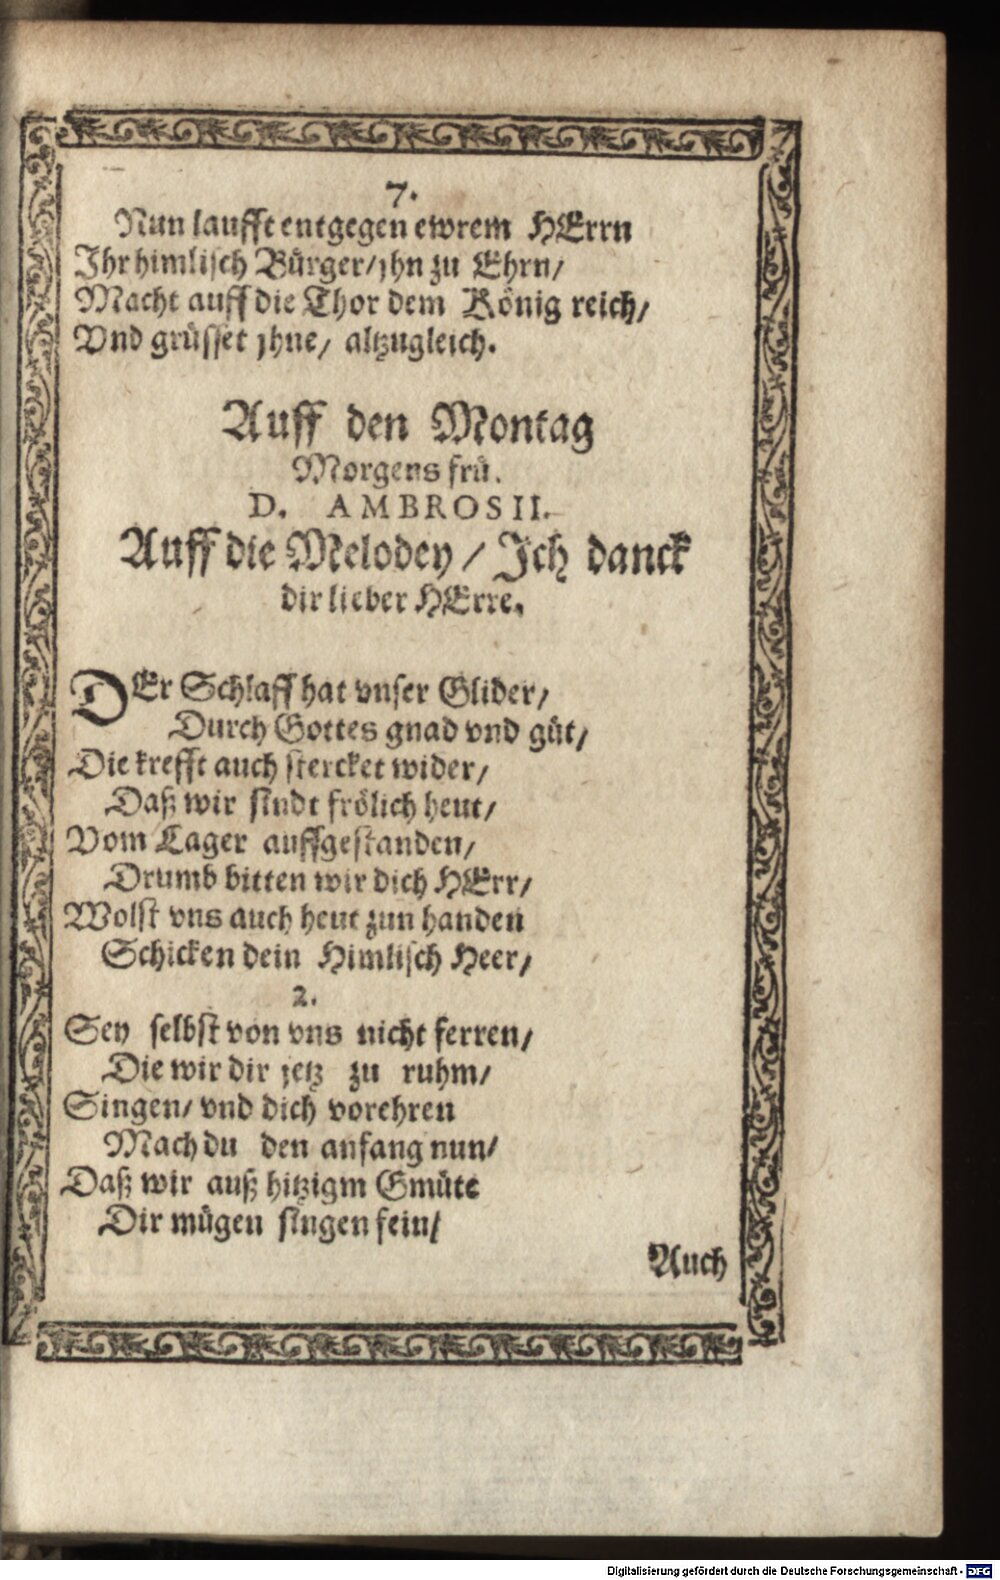 7.
Nun laufft entgegen ewrem HErrn
Ihr himlisch Bürger/ jhn zu Ehrn/
Macht auff die Thor dem König reich/
Vnd grüsset jhne/ altzugleich.
Auff den Montag
Morgens frü.
D. AMBROSII.
Auff die Melodey / Ich danck
dir lieber HErre.
DEr Schlaff hat vnser Glider/
Durch Gottes gnad vnd güt/
Die krefft auch stercket wider/
Daß wir sindt frölich heut/
Vom Lager auffgestanden/
Drumb bitten wir dich HErr/
Wolst vns auch heut zun handen
Schicken dein Himlisch Heer/
2.
Sey selbst von vns nicht ferren/
Die wir dir jetz zu ruhm/
Singen/ vnd dich vorehren
Mach du den anfang nun/
Daß wir auß hitzigm Gmüte
Dir mügen singen fein/
Auch
Digitalisierung gefördert durch die Deutsche Forschungsgemeinschaft - DFG